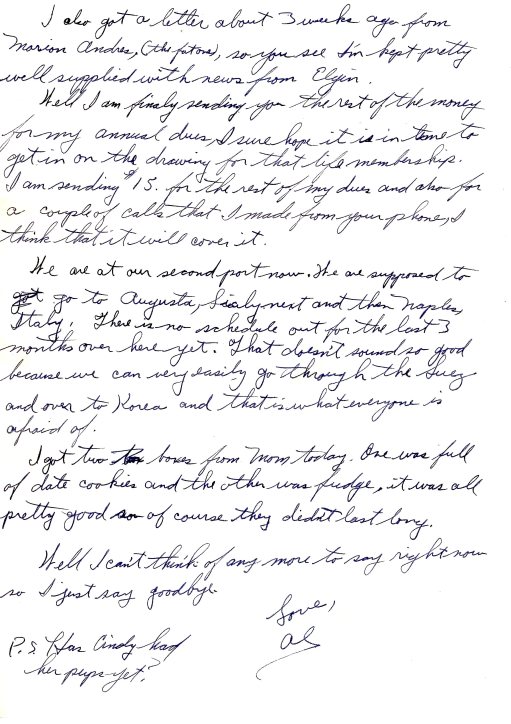 I also got a letter about 3 weeks ago from
Marion Andres, (the fatone), so you see I'm kept pretty
well supplied with news from Elgin.
Well I am finaly sending you the rest of the money
for my annual dues, I sure hope it is in time to
get in on the drawing for that life membership.
I am sending $15. for the rest of my dues and also for
a couple of calls that I made from your phone, I
think that it will cover it.
We are at our second port now. We are supposed to
go to Augusta, Sicaly next and then Naples,
Italy. There is no schedule out for the last 3
months over here yet. That doesn't sound so good
because we can very easily go through the Suez
and over to Korea and that is what everyone is
afraid of.
I got two boxes from Mom today. One was full
of date cookies and the other was fudge, it was all
pretty good of course they didn't last long.
Well I can't think of any more to say right now
so I just say goodbye.
Love,
Al
P.S. Has Cindy had
her pups yet?